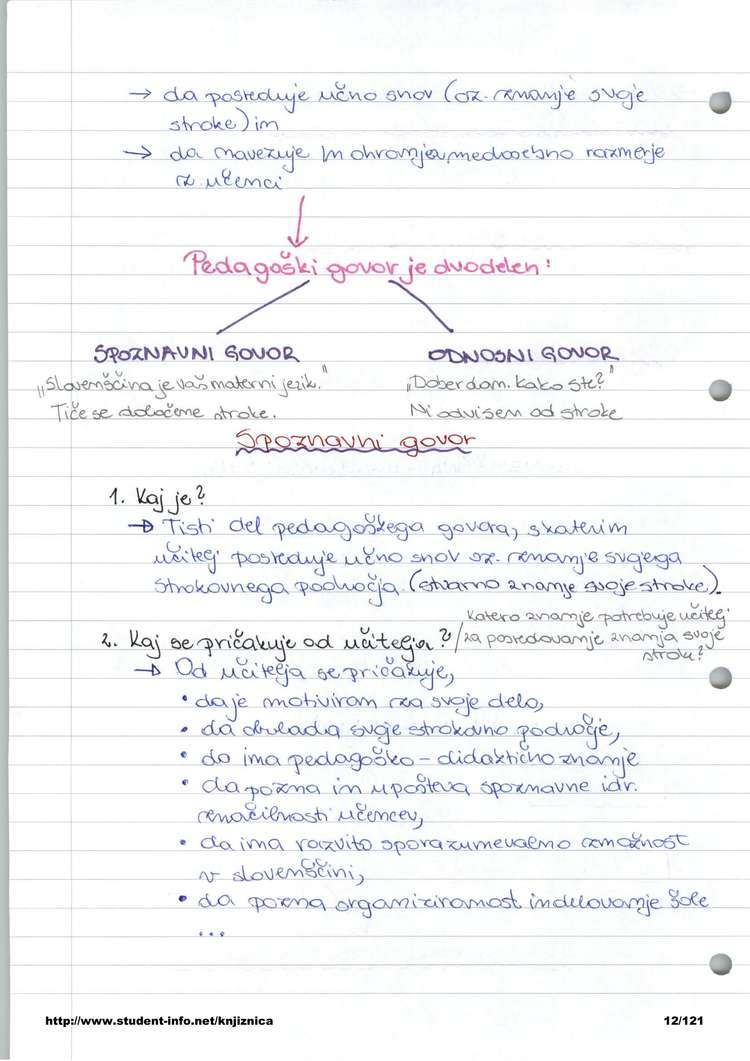 → da posreduje učno snov (oz. znanje svoje
stroke) in
→ da navezuje in ohranjea medosebno razmerje
z učenci
Pedagoški govor je dvodelen:
SPOZNAVNI GOVOR
ODNOSNI GOVOR
„Slovenščina je vaš materni jezik.“
„Dober dan. Kako ste?“
Tiče se določene stroke.
Ni odvisen od stroke
Spoznavni govor
1. Kaj je?
→ Tisti del pedagoškega govora, s katerim
učitelj posreduje učno snov oz. znanje svojega
strokovnega področja. (stvarno znanje svoje stroke).
2. Kaj se pričakuje od učitelja? / Katero znanje potrebuje učitelj
za posredovanje znanja svoje
stroke?
→ Od učitelja se pričakuje,
• da je motiviran za svoje delo,
• da obvlada svoje strokovno področje,
• da ima pedagoško - didaktično znanje
• da pozna in upošteva spoznavne idr.
značilnosti učencev,
• da ima razvito sporazumevalno zmožnost
v slovenščini,
• da pozna organiziranost in delovanje šole
...
http://www.student-info.net/knjiznica
12/121